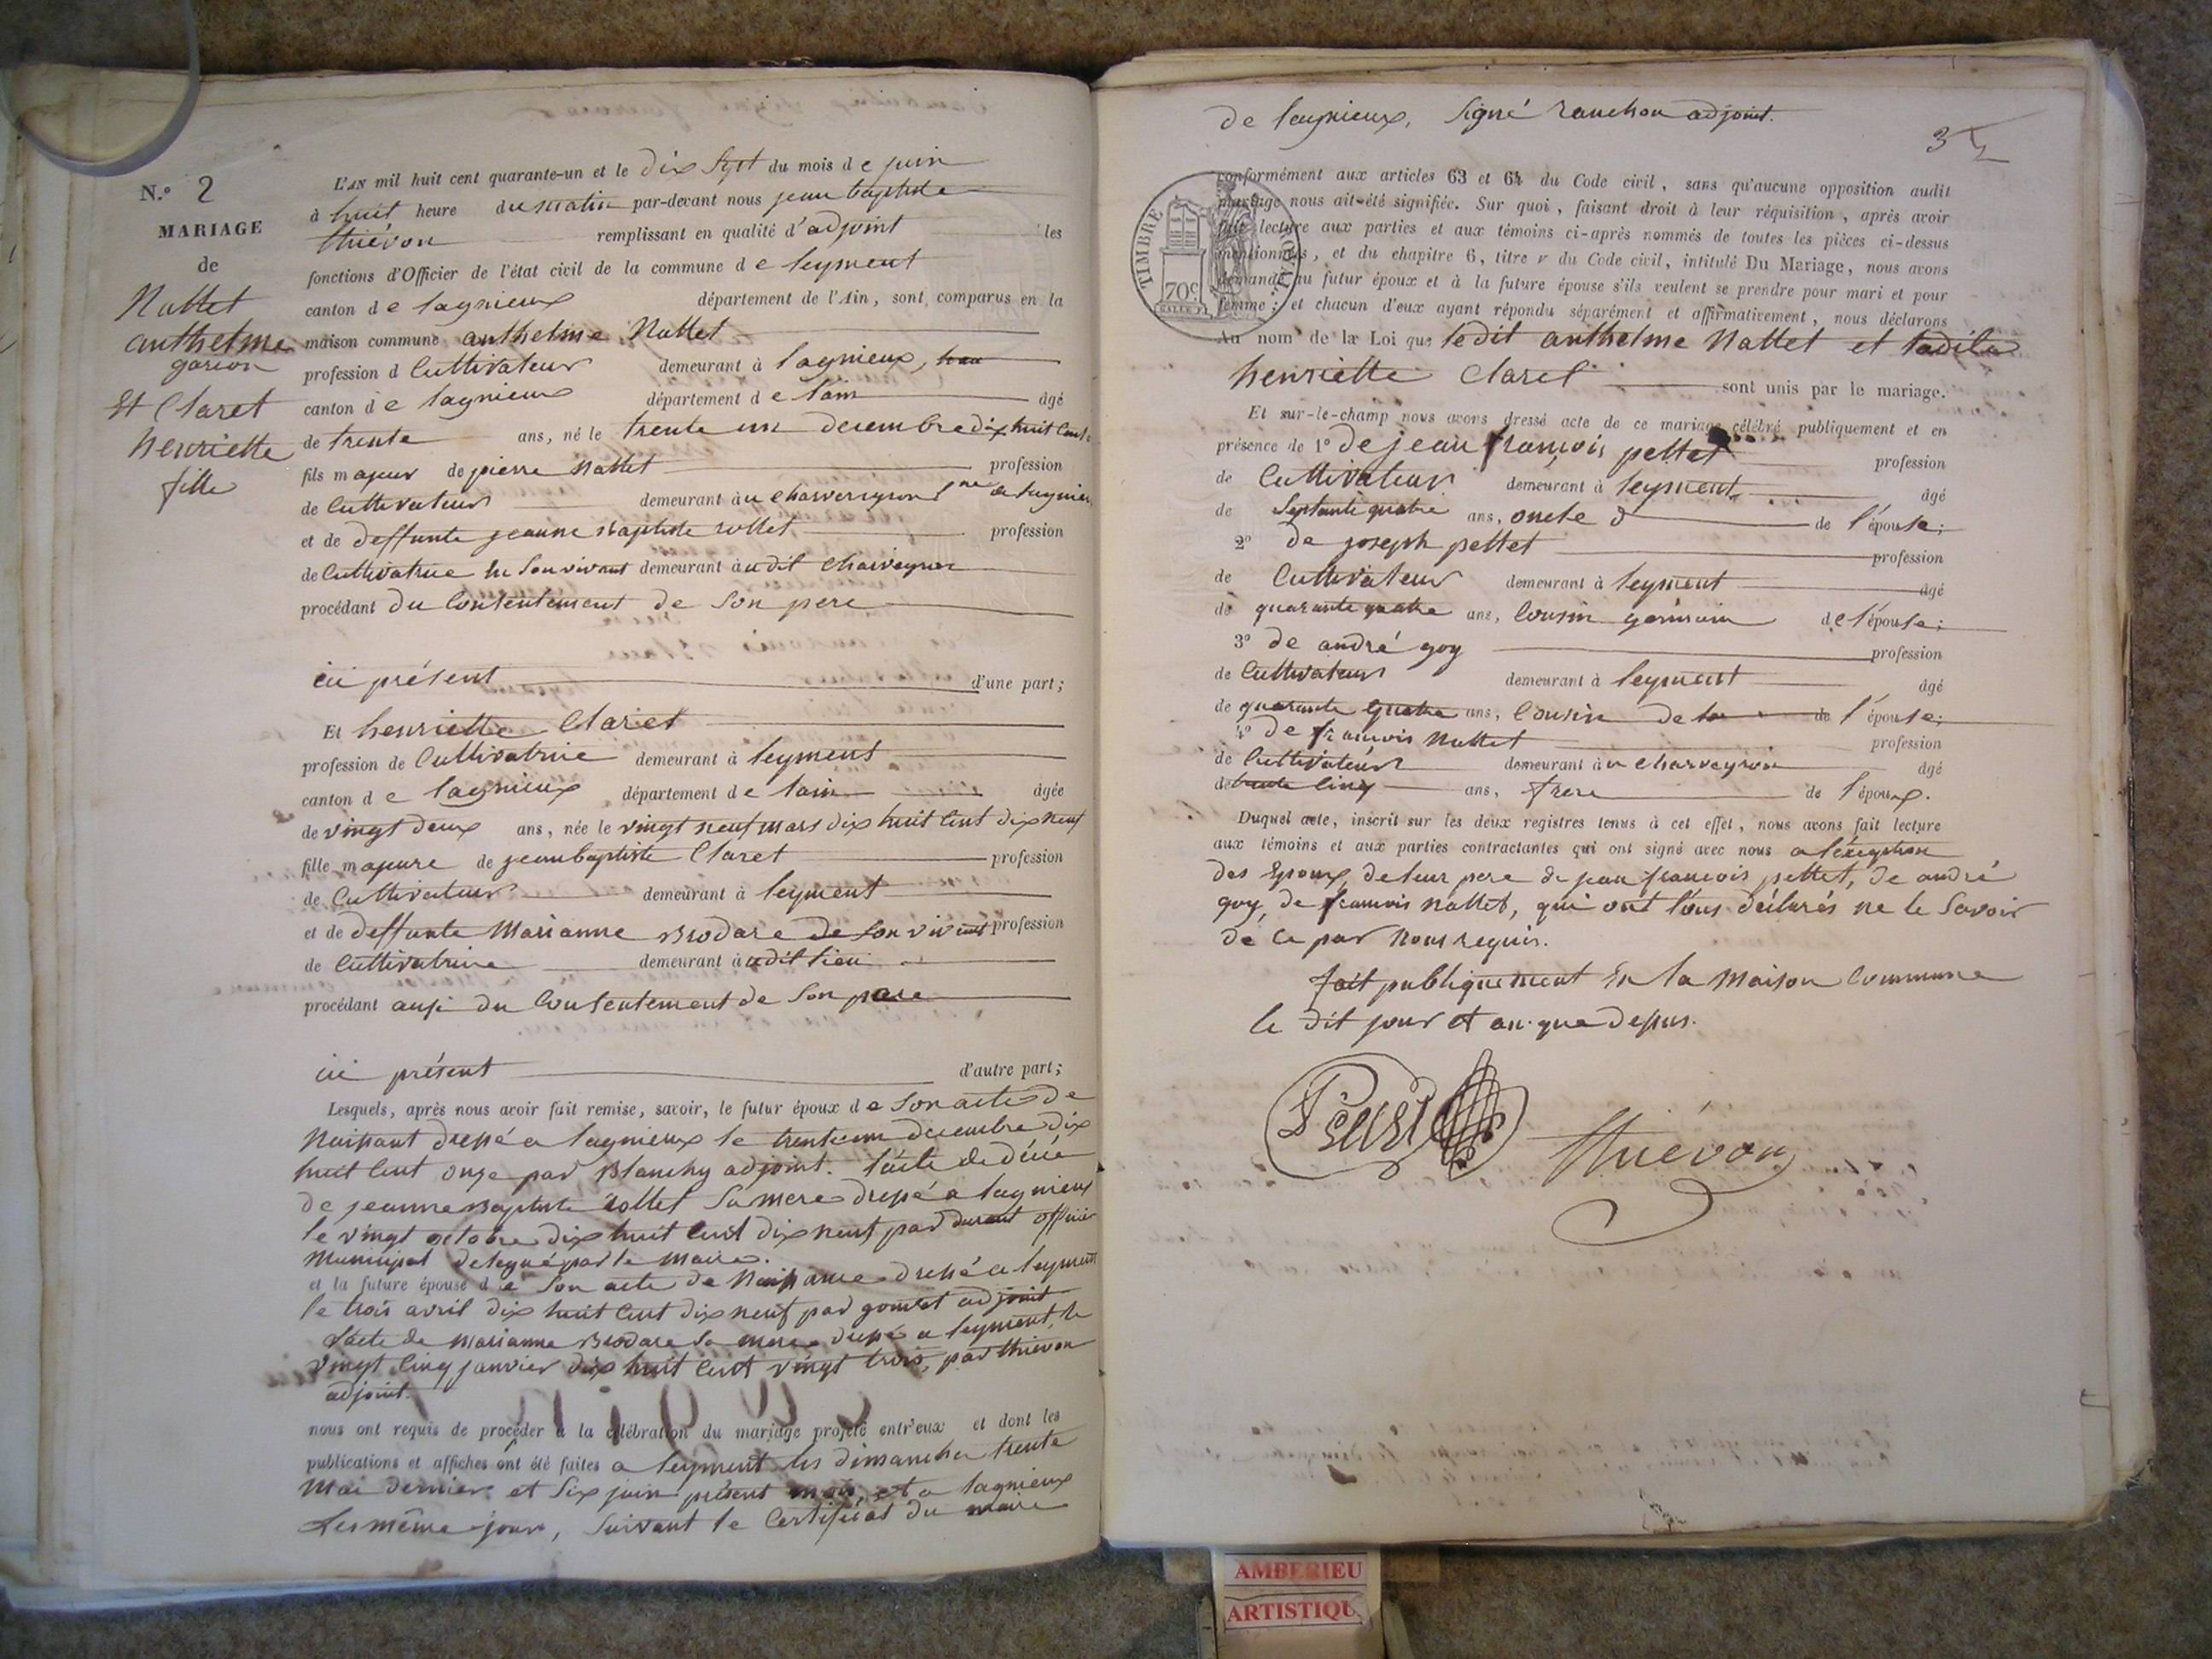 N.º 2
MARIAGE
de
Nallet
anthelme
garcon
Et Claret
henriette
fille
L'AN mil huit cent quarante-un et le dix Sept du mois de juin
à huit heure du matin par-devant nous jean baptiste
thiévon remplissant en qualité d'adjoint les
fonctions d'Officier de l'état civil de la commune de leyment
canton de lagnieux département de l'Ain, sont comparus en la
maison commune anthelme Nallet
profession d Cultivateur demeurant à lagnieux,
canton de lagnieux département de lain âgé
de trente ans, né le trente un decembre dix huit Cent
fils majeur de pierre Nallet profession
de Cultivateur demeurant à
et de deffunte jeanne Baptiste rollet profession
de Cultivatrice En Son vivant demeurant audit Charveyron
procédant du Consentement de Son pere
ici présent d'une part;
Et henriette Claret
profession de Cultivatrice demeurant à leyment
canton de lagnieux département de lain âgée
de vingt deux ans, née le vingt neuf mars dix huit Cent dix neuf
fille majeure de jean baptiste Claret profession
de Cultivateur demeurant à leyment
et de deffunte Marianne Brodare de Son vivant profession
de Cultivatrice demeurant audit lieu
procédant aussi du Consentement de Son pere
ici présent d'autre part;
Lesquels, après nous avoir fait remise, savoir, le futur époux de Son acte de
Naissant dressé a lagnieux le trente un decembre dix
huit Cent onze par Blanchy adjoint. l'acte de décé
de jeanne Baptiste rollet Sa mere dressé a lagnieux
le vingt octobre dix huit Cent dix neuf par durant officier
Municipal delegué par le Maire.
et la future épouse de Son acte de Naissance dressé a leyment
le trois avril dix huit Cent dix neuf par adjoint
l'acte de Marianne Brodare Sa mere dressé a leyment, le
vingt Cinq janvier dix huit Cent vingt trois, par thievon
adjoint.
nous ont requis de procéder à la célébration du mariage projeté entr'eux et dont les
publications et affiches ont été faites a leyment les dimanches trente
Mai dernier et Six juin présent mois, et a lagnieux
les même jour, Suivant le Certificat du maire
de lagnieux, Signé ranchon adjoint.
3
TIMBRE ROYAL
70c
conformément aux articles 63 et 64 du Code civil, sans qu'aucune opposition audit
mariage nous ait été signifiée. Sur quoi, faisant droit à leur réquisition, après avoir
fait lecture aux parties et aux témoins ci-après nommés de toutes les pièces ci-dessus
mentionnées, et du chapitre 6, titre v du Code civil, intitulé Du Mariage, nous avons
demandé au futur époux et à la future épouse s'ils veulent se prendre pour mari et pour
femme; et chacun d'eux ayant répondu séparément et affirmativement, nous déclarons
Au nom de la Loi que ledit anthelme Nallet et ladite
henriette Claret sont unis par le mariage.
Et sur-le-champ nous avons dressé acte de ce mariage célébré publiquement et en
présence de 1º de jean françois pellet profession
de Cultivateur demeurant à leyment âgé
de Septante quatre ans, oncle de l'épouse;
2º de joseph pellet profession
de Cultivateur demeurant à leyment âgé
de quarante quatre ans, Cousin germain de l'épouse;
3º de andré goy profession
de Cultivateur demeurant à leyment âgé
de quarante quatre ans, Cousin de la de l'épouse;
4º de francois Nallet profession
de Cultivateur demeurant à charveyron âgé
de trente Cinq ans, frere de l'époux.
Duquel acte, inscrit sur les deux registres tenus à cet effet, nous avons fait lecture
aux témoins et aux parties contractantes qui ont signé avec nous a lexception
des Epoux, de leur pere de jean francois pellet, de andré
goy, de francois Nallet, qui ont tous déclarés ne le Savoir
de ce par Nous requis.
fait publiquement En la Maison Commune
le dit jour et an que dessus.
Thiévon
AMBERIEU
ARTISTIQU